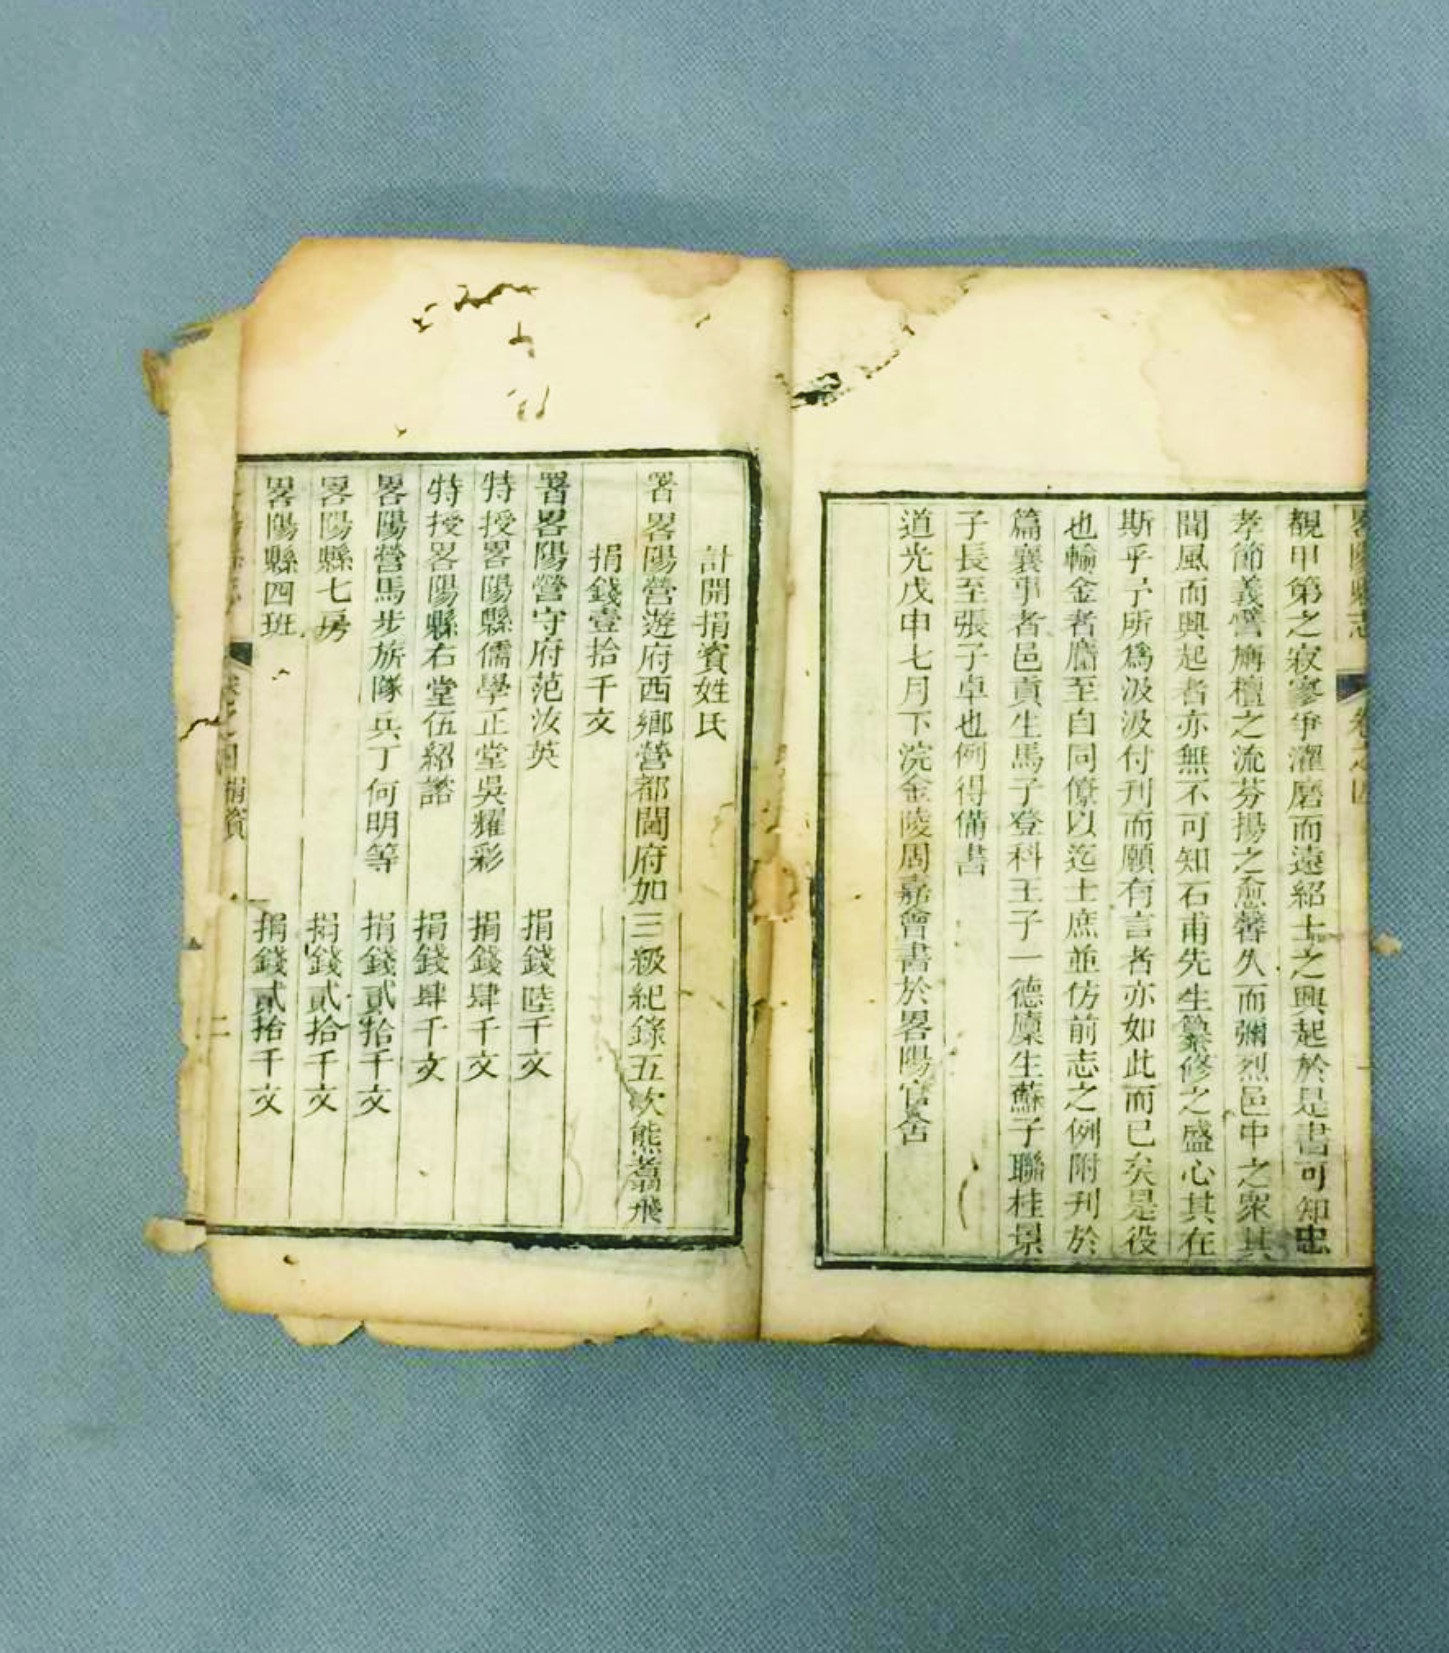 畧陽縣志 卷之四
覩甲第之寂寥爭濯磨而遠紹士之興起於是書可知忠
孝節義譬旃檀之流芬揚之愈馨久而彌烈邑中之衆其
聞風而興起者亦無不可知石甫先生纂修之盛心其在
斯乎予所爲汲汲付刊而願有言者亦如此而已矣是役
也輸金者麕至自同僚以迄士庶並仿前志之例附刊於
篇襄事者邑貢生馬子登科王子一德廩生蘇子聯桂景
子長至張子卓也例得備書
道光戊申七月下浣金陵周嘉會書於畧陽官舍
計開捐資姓氏
署畧陽營遊府西鄉營都閫府加三級紀錄五次熊翥飛
捐錢壹拾千文
署畧陽營守府范汝英 捐錢陸千文
特授畧陽縣儒學正堂吳耀彩 捐錢肆千文
特授畧陽縣右堂伍紹諮 捐錢肆千文
畧陽營馬步旂隊兵丁何明等 捐錢貳拾千文
畧陽縣七房 捐錢貳拾千文
畧陽縣四班 捐錢貳拾千文
捐資 二